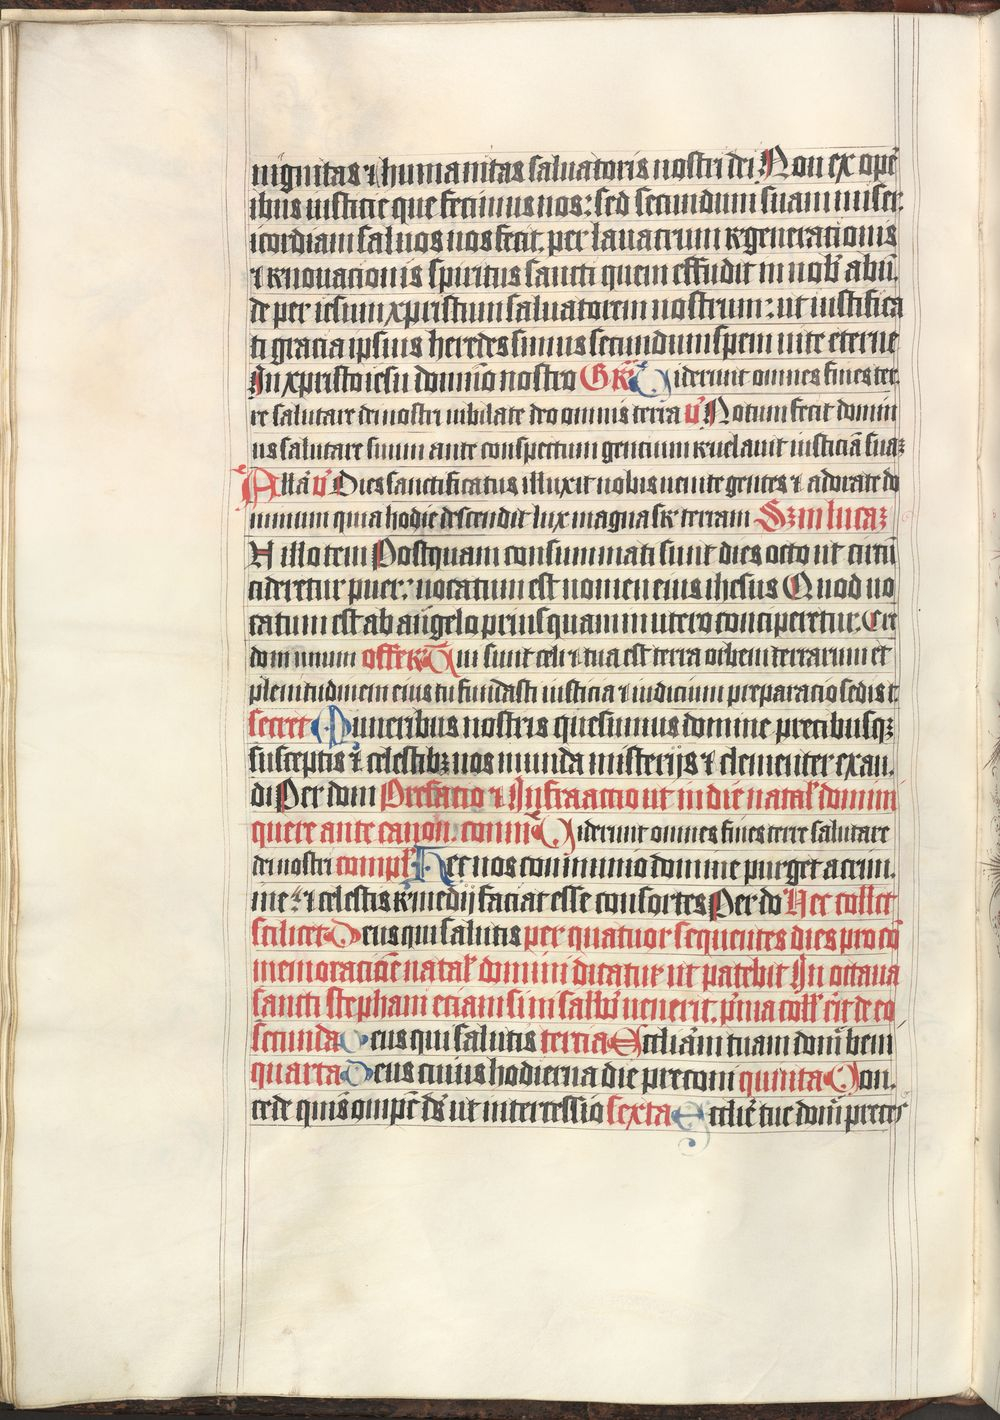 nignitas ⁊ humanitas saluatoris nostri dei Non ex ope
ribus iusticie que fecimus nos: sed secundum suam miser
icordiam saluos nos fecit. per lauacrum regeneracionis
⁊ renouacionis spiritus sancti quem effudit in nob̄ abū
de per iesum xpristum saluatorem nostrum: ut iustifica
ti gracia ipsius heredes simus secundum spem uite eterne
In xpristo iesu domīo nostro Gr̄ Uiderunt omnes fines ter
re salutare dei nostri iubilate deo omnis terra v̄ Notum fecit domin
us salutare suum ante conspectum gentium reuelauit iusticiā suaꝫ
Allā v̄ Dies sanctificatus illuxit nobis uenite gentes ⁊ adorate do
minum quia hodie descendit lux magna sr̄ terram Sꝫm lucaꝫ
N illo tem Postquam consummati sunt dies octo ut circū
cideretur puer: uocatum est nomen eius ihesus Quod uo
catum est ab angelo priusquam in utero conciperetur. Cre
do in unum offerr̄ Tui sunt celi ⁊ tua est terra orbem terrarum et
plenitudinem eius tu fundasti iusticia ⁊ iudicium preparacio sedis t.
secret Muneribus nostris quesumus domine precibusqꝫ
susceptis ⁊ celestibꝫ nos munda misterijs ⁊ clementer exau.
di Per dom Prefacio ⁊ Infra actio ut in die natal̄ domini
quere ante canon. com̄ Uiderunt omnes fines terre salutare
dei nostri compl̄ Hec nos communio domine purget a crim.
ine: ⁊ celestis remedij faciat esse consortes Per do Hec collct
scilicet Deus qui salutis per quatuor sequentes dies pro cō
memoracioē natal̄ domini dicatur ut patebit In octaua
sancti stephani eciam si in sabb̄o uenerit. p̄ma coll̄ erit de eo
secunda Deus qui salutis tercia Eccliām tuam dom̄ ben
quarta Deus cuius hodierna die preconi quinta Con.
cede quis̄ omp̄e ds̄ ut intercessio sexta Ecclie tue dom̄ preces